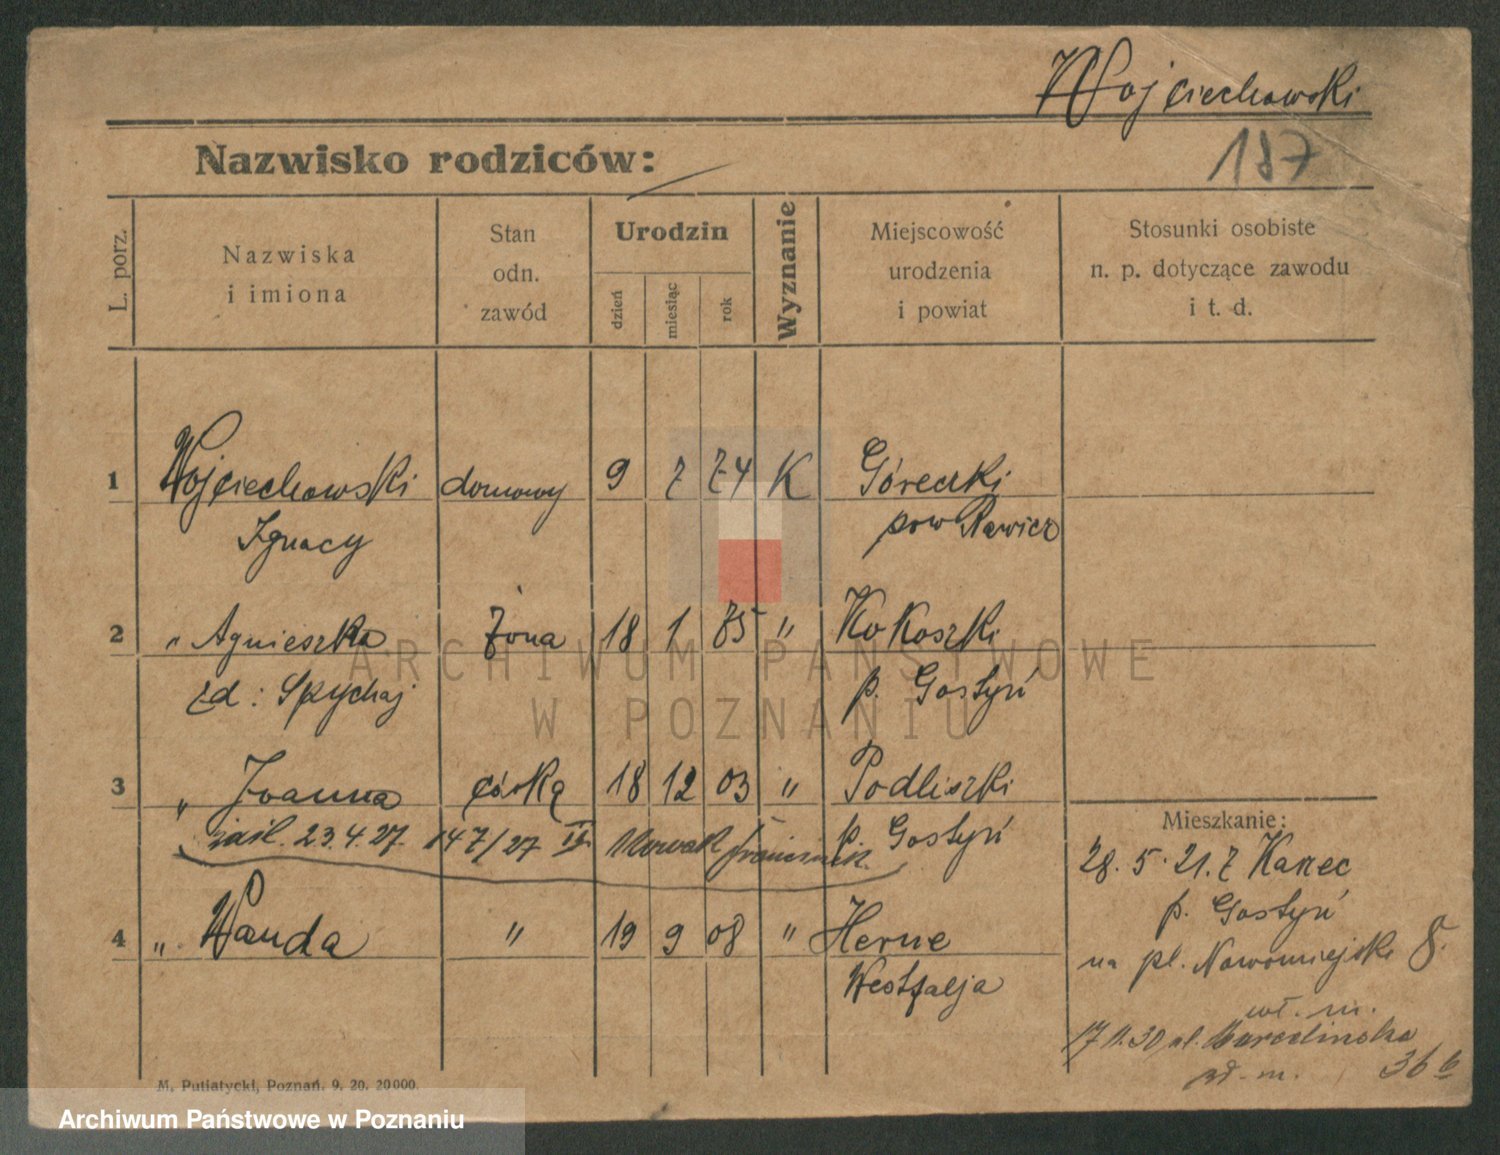 Wojciechowski
187
Nazwisko rodziców:
L. porz.
Nazwiska
i imiona
Stan
odn.
zawód
Urodzin
dzień
miesiąc
rok
Wyznanie
Miejscowość
urodzenia
i powiat
Stosunki osobiste
n. p. dotyczące zawodu
i t. d.
1 Wojciechowski domowy 9 7 74 K Góreczki
Ignacy pow Rawicz
2 " Agnieszka żona 18 1 75 " Kokoszki
zd: Spychaj p. Gostyń
3 " Joanna córka 18 12 03 " Podliszki
zaśl. 23.4.27. 147/27 Nowak Franciszek p. Gostyń
4 " Wanda " 19 9 08 " Herne
Westfalja
Mieszkanie:
28. 5. 21. z Karzec
p. Gostyń
na pl. Nowomiejski 8.
wł. m.
17 11.30 ul. Marcelińska
wł. m. 36 b
M. Putiatycki, Poznań. 9. 20. 20000.
ARCHIWUM PAŃSTWOWE
W POZNANIU
Archiwum Państwowe w Poznaniu